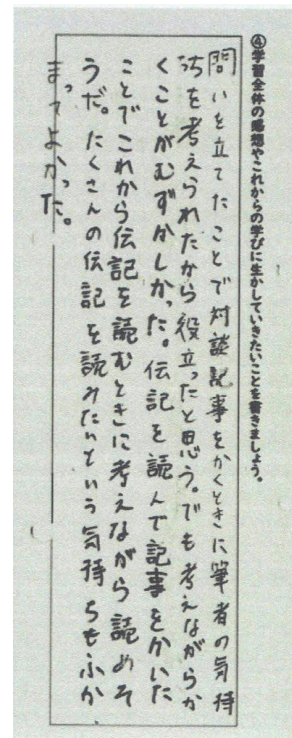 ④学習全体の感想やこれからの学びに生かしていきたいことを書きましょう。
問いを立てたことで対談記事をかくときに筆者の気持
ちを考えられたから役立ったと思う。でも考えながらか
くことがむずかしかった。伝記を読んで記事をかいた
ことでこれから伝記を読むときに考えながら読めそ
うだ。たくさんの伝記を読みたいという気持ちもふか
まってよかった。